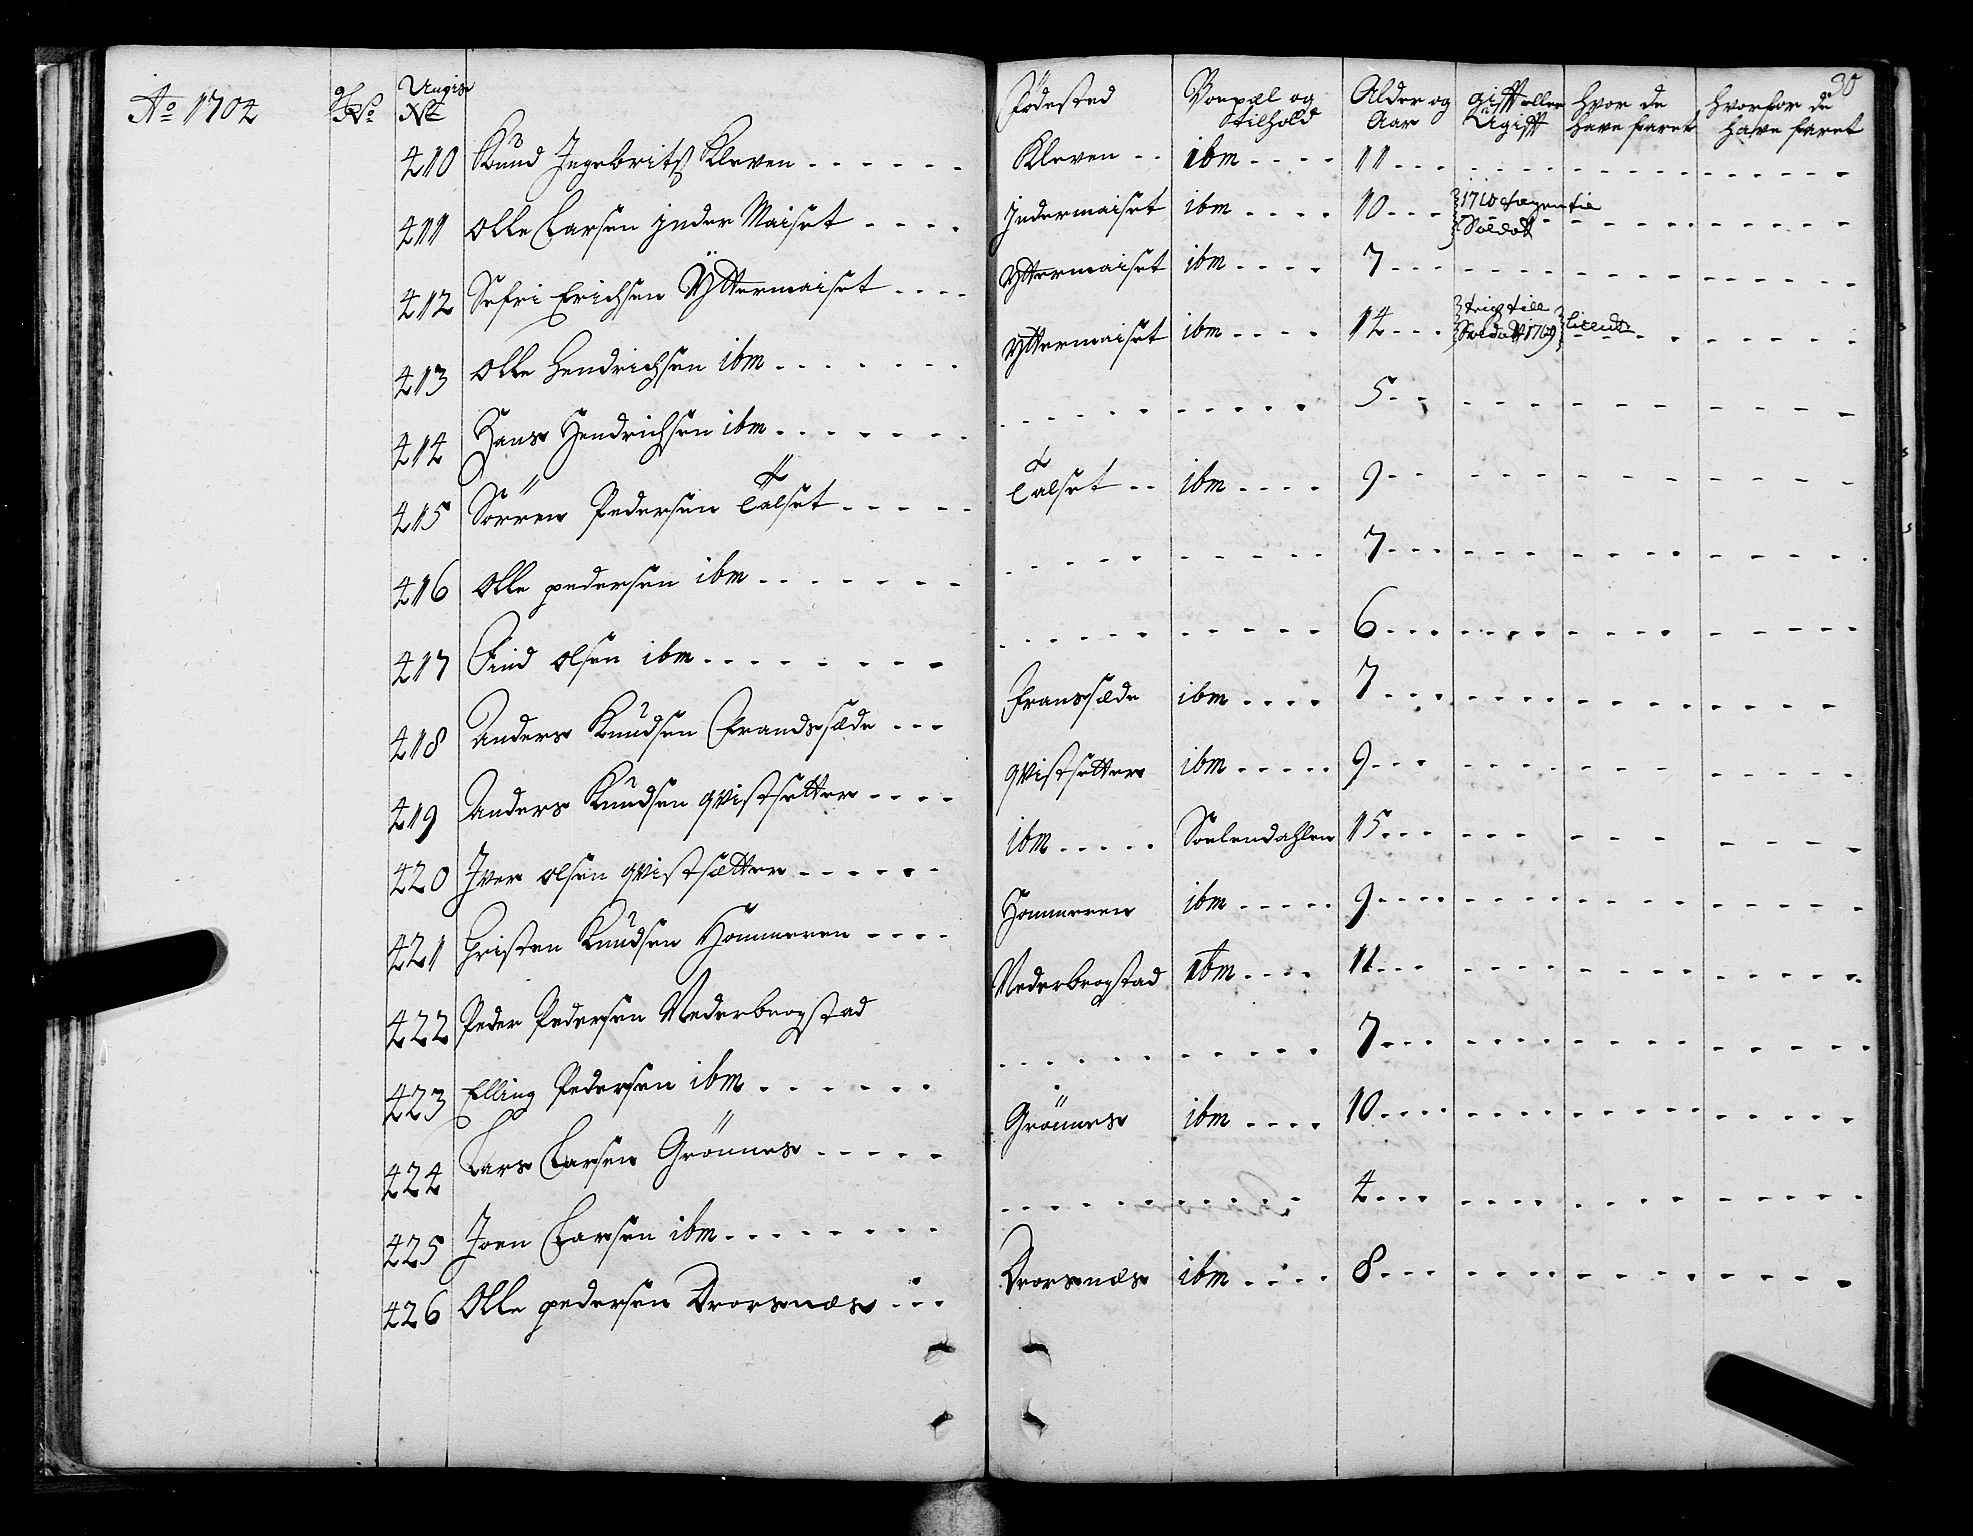 Ao 1704 No Ungis No Födested Boepæl og tilhold Alder og Aar gifft eller Ugifft Hvor de have faret Hvorfor de hafve faret 30
410 Knud Ingebrits Kleven Kleven ibm 11
411 Olle Larsen jnder Maiset Jndermaiset ibm 10 1710 tagen til Soldatt
412 Sefri Erichsen Yttermaiset Yttermaiset ibm 7
413 Olle Hendrichsen ibm Yttermaiset ibm 14 till Soldatt 1709
414 Hans Hendrichsen ibm 5
415 Sörren Pedersen Talset Talset ibm 9
416 Olle pedersen ibm 7
417 Find Olsen ibm 6
418 Anders Knudsen Frandssæde Franssæde ibm 7
419 Anders Knudsen qvistsetter qvistsetter ibm 9
420 Jver Olsen qvistsætter ibm Soelendahlen 15
421 Christen Knudsen Hammeren Hammeren ibm 9
422 Peder Pedersen Nederbergstad Nederbergstad ibm 11
423 Elling Pedersen ibm 7
424 Lars Larsen Grönnes Grönnes ibm 10
425 Joen Larsen ibm 4
426 Olle pedersen Drorsnæs Drorsnæs ibm 8